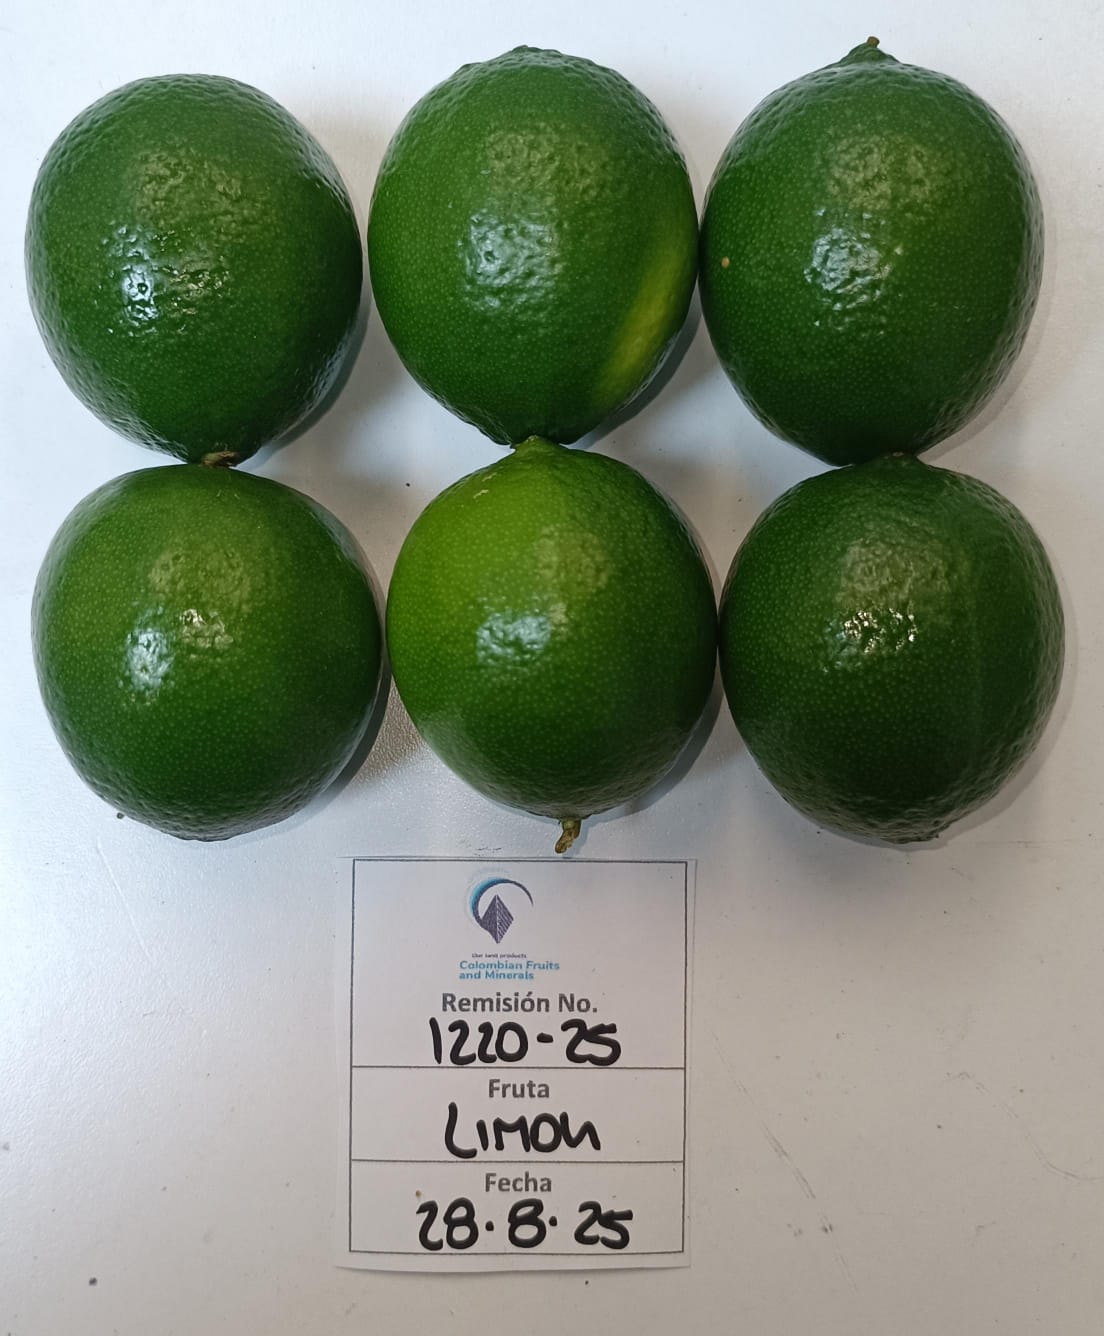 Our land products
Colombian Fruits
and Minerals
Remisión No.
1220-25
Fruta
LIMON
Fecha
28.8.25